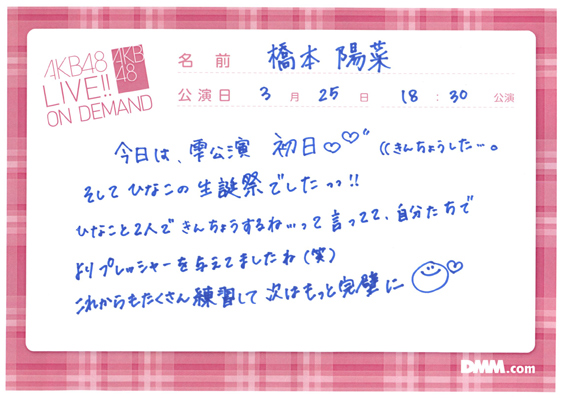 AKB48
LIVE!!
ON DEMAND
AKB
48
名前 橋本 陽菜
公演日 3月25日 18:30公演
今日は、雫公演 初日♡♡" ((きんちょうした…。
そして ひなこの 生誕祭でしたっっ!!
ひなこと2人で きんちょうするね…って 言ってて、自分たちで
よりプレッシャーを与えてましたね(笑)
これからもたくさん練習して 次はもっと完璧に
DMM.com